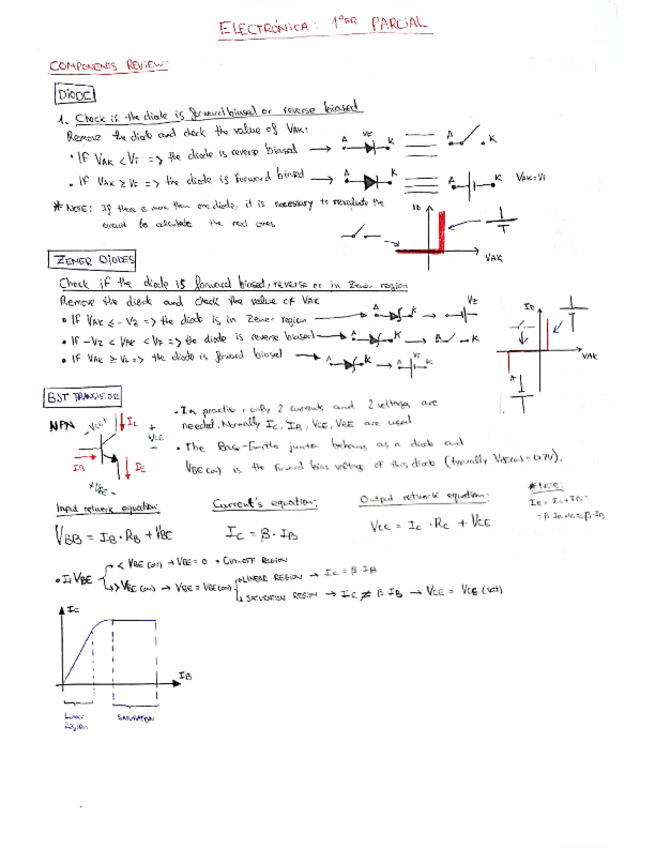 ELECTRÓNICA: 1ºER PARCIAL
COMPONENTS REVIEW:
DIODE
1. Check is the diode is forward biased or reverse biased
Remove the diode and check the value of VAK:
• IF VAK < Vγ => the diode is reverse biased
A K A K
• IF VAK ≥ Vγ => the diode is forward biased
A K A K VAK=Vγ
* NOTE: If there is more than one diode, it is necessary to revaluate the
circuit to calculate the next ones.
ID
VAK
ZENER DIODES
Check if the diode is forward biased, reverse or in Zener region
Remove the diode and check the value of VAK
• IF VAK ≤ -VZ => the diode is in Zener region
A K VZ
• IF -VZ < VAK < Vγ => the diode is reverse biased
A K A K
• IF VAK ≥ Vγ => the diode is forward biased
A K A K
VAK
BJT TRANSISTOR
NPN
IC
+
VCE
-
IB
IE
- In practice, only 2 currents and 2 voltages are
needed. Normally IC, IB, VCE, VBE are used
• The Base-Emitter junction behaves as a diode and
VBE(on) is the forward bias voltage of this diode (typically VBE(on) = 0.7V).
Input network equation:
VBB = IB · RB + VBE
Current's equation:
IC = β · IB
Output network equation:
VCC = IC · RC + VCE
* Note:
• IF VBE
< VBE(on) → VBE = 0 → CUT-OFF REGION
> VBE(on) → VBE = VBE(on)
LINEAR REGION → IC = β · IB
SATURATION REGION → IC ≠ β IB → VCE = VCE(sat)
IC
IB
Linear
Region
SATURATION